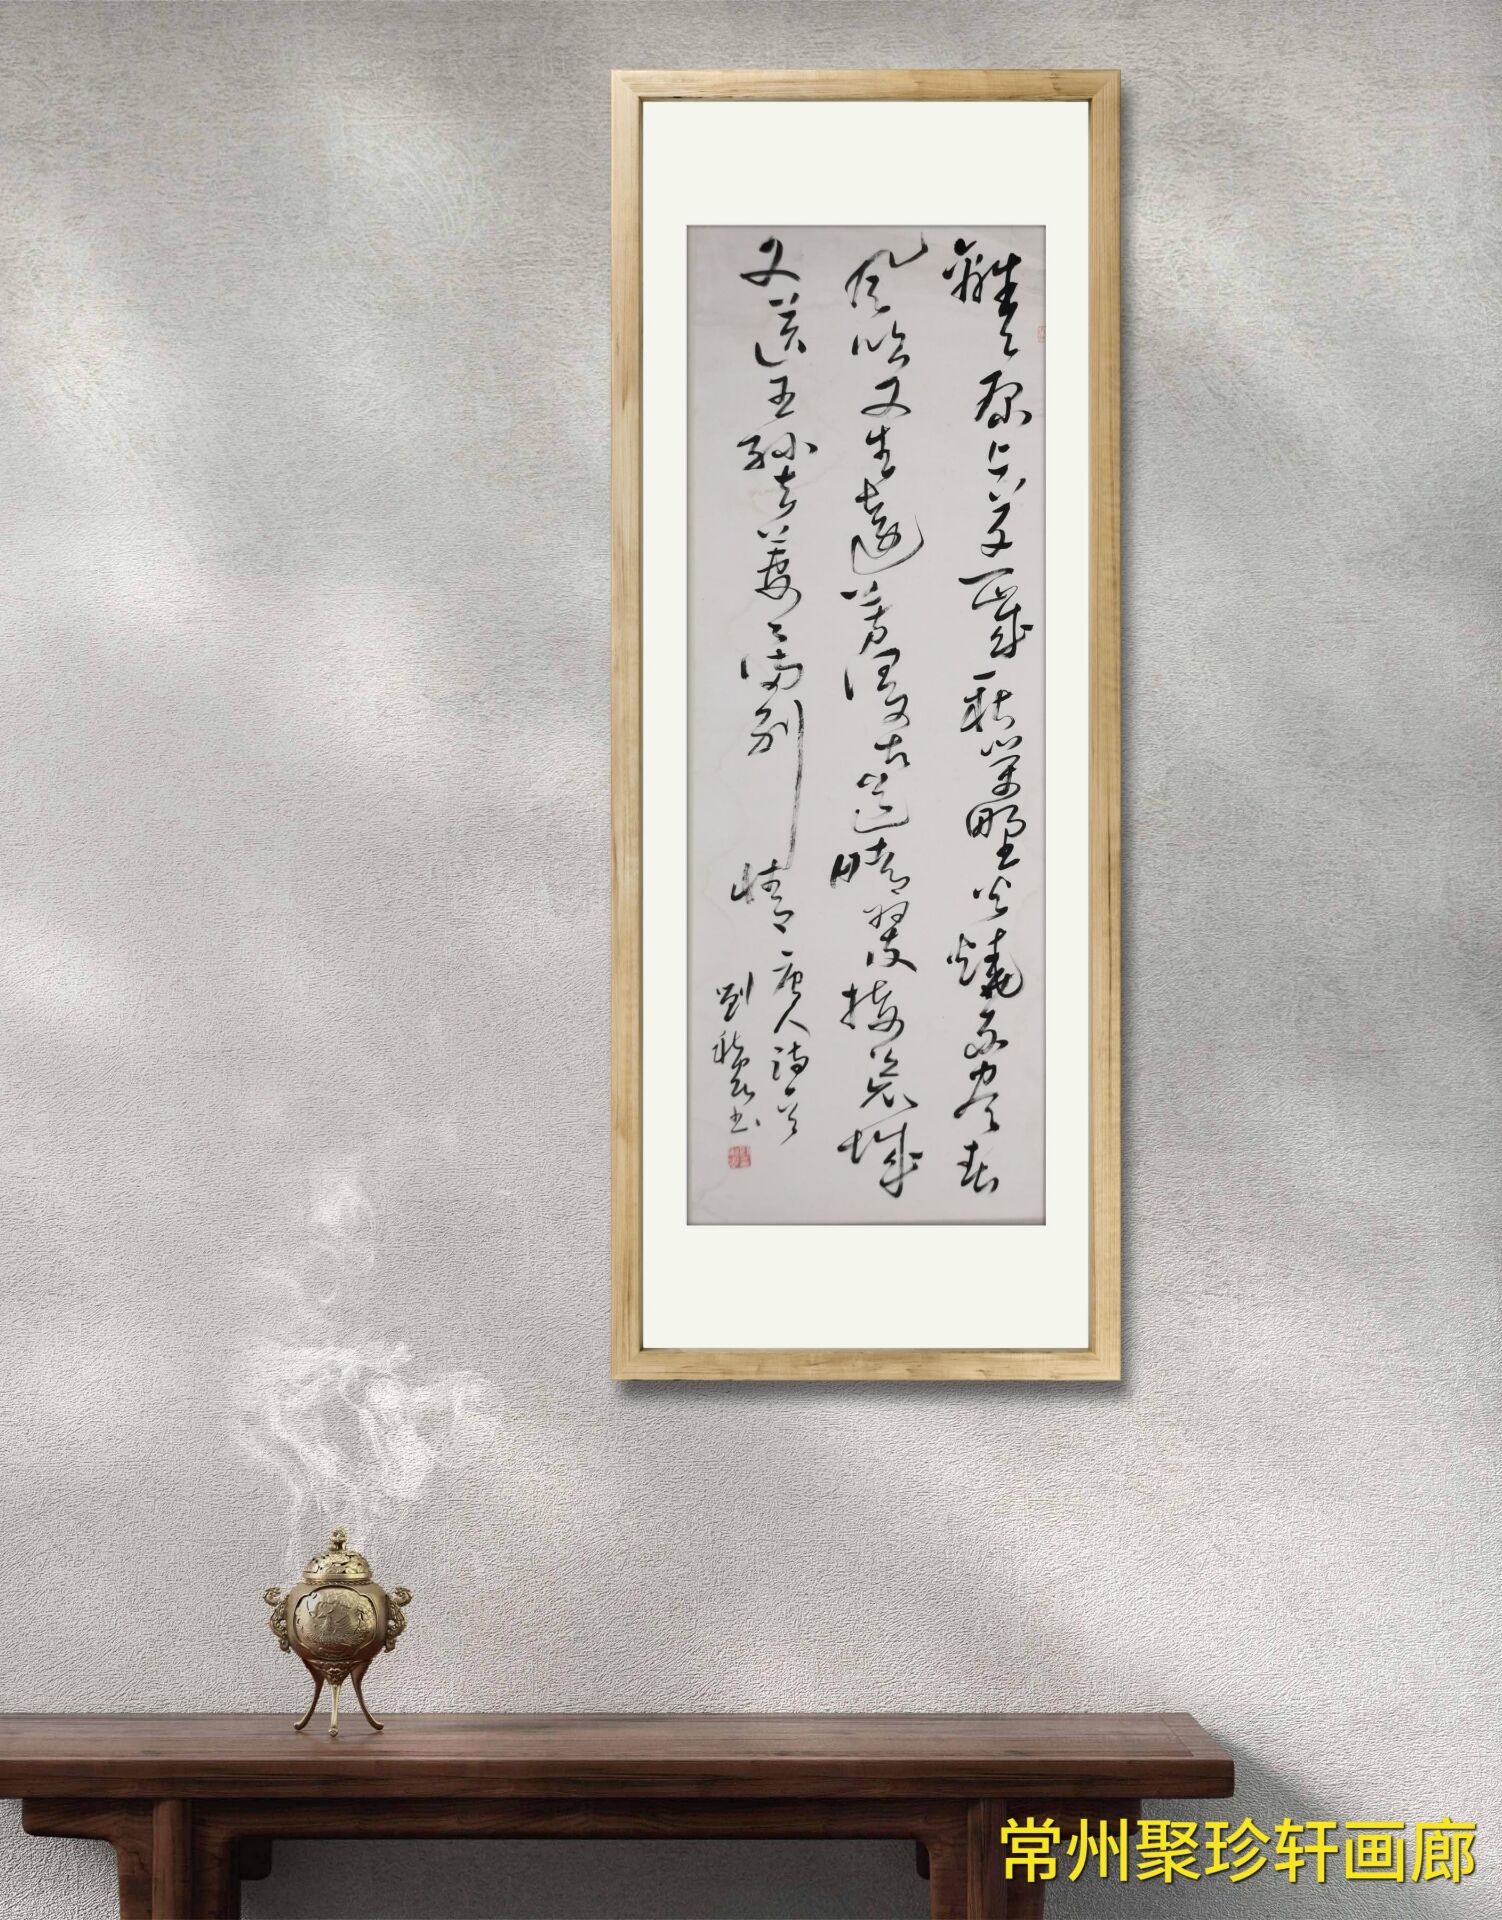 離々原上草一歲一枯榮野火燒不盡春
風吹又生遠芳侵古道晴翠接荒城
又送王孫去萋々滿別情
唐人詩一首
劉 書
常州聚珍轩画廊